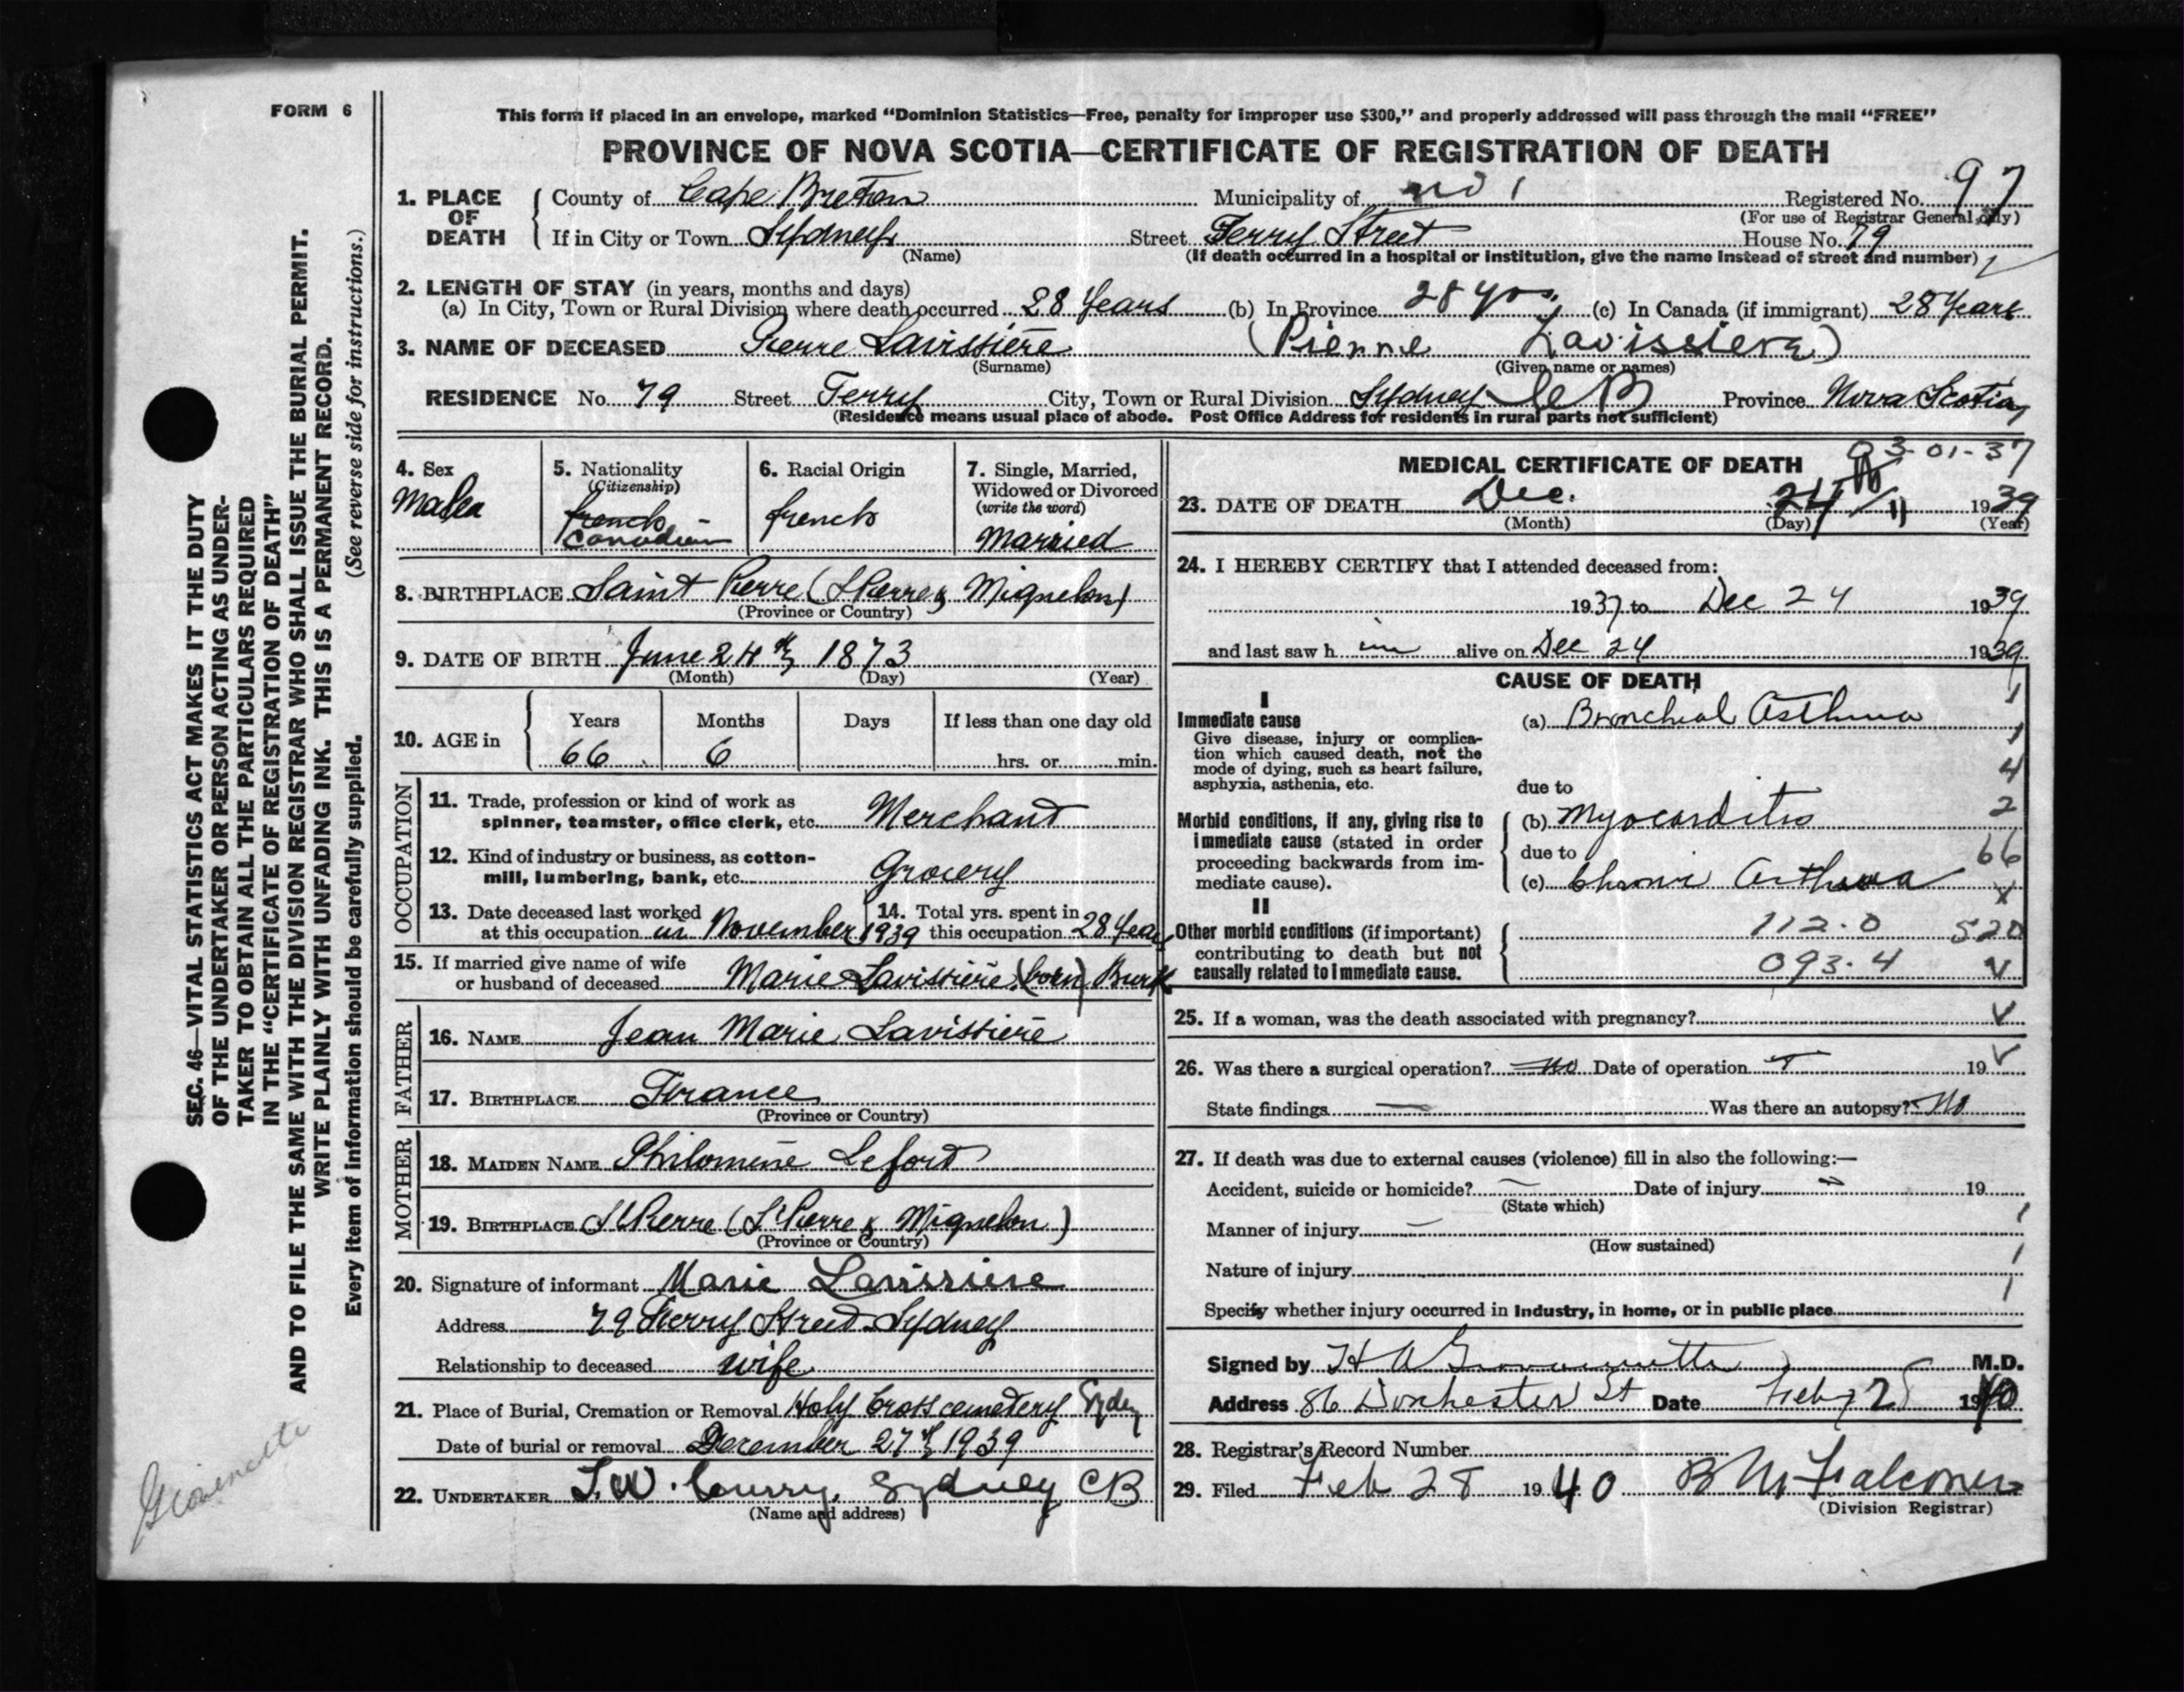 FORM 6
This form if placed in an envelope, marked “Dominion Statistics—Free, penalty for improper use $300,” and properly addressed will pass through the mail “FREE”
PROVINCE OF NOVA SCOTIA—CERTIFICATE OF REGISTRATION OF DEATH
1. PLACE OF DEATH County of Cape Breton Municipality of no 1 Registered No. 97
(For use of Registrar General only)
If in City or Town Sydney Street Ferry Street House No. 79
(Name) (If death occurred in a hospital or institution, give the name instead of street and number)
2. LENGTH OF STAY (in years, months and days)
(a) In City, Town or Rural Division where death occurred 28 Years (b) In Province 28 yrs (c) In Canada (if immigrant) 28 Years
3. NAME OF DECEASED Pierre Lavissière (Pierre Lavissiere)
(Surname) (Given name or names)
RESIDENCE No. 79 Street Ferry City, Town or Rural Division Sydney C B Province Nova Scotia
(Residence means usual place of abode. Post Office Address for residents in rural parts not sufficient)
4. Sex Male
5. Nationality (Citizenship) french Canadian
6. Racial Origin french
7. Single, Married, Widowed or Divorced (write the word) Married
8. BIRTHPLACE Saint Pierre (St Pierre & Miquelon)
(Province or Country)
9. DATE OF BIRTH June 24th 1873
(Month) (Day) (Year)
10. AGE in Years 66 Months 6 Days If less than one day old hrs. or min.
OCCUPATION
11. Trade, profession or kind of work as
spinner, teamster, office clerk, etc. Merchant
12. Kind of industry or business, as cotton-
mill, lumbering, bank, etc. Grocery
13. Date deceased last worked
at this occupation in November 1939
14. Total yrs. spent in
this occupation 28 Years
15. If married give name of wife
or husband of deceased Marie Lavissière (born) Burk
FATHER
16. NAME Jean Marie Lavissière
17. BIRTHPLACE France
(Province or Country)
MOTHER
18. MAIDEN NAME Philomène Lefort
19. BIRTHPLACE St Pierre (St Pierre & Miquelon)
(Province or Country)
20. Signature of informant Marie Lavissiere
Address 79 Ferry Street Sydney
Relationship to deceased wife
21. Place of Burial, Cremation or Removal Holy Cross cemetery Sydey
Date of burial or removal December 27th 1939
22. UNDERTAKER T.W. Curry, Sydney CB
(Name and address)
MEDICAL CERTIFICATE OF DEATH
03-01-37
23. DATE OF DEATH Dec. 24th / 11 1939
(Month) (Day) (Year)
24. I HEREBY CERTIFY that I attended deceased from:
1937 to Dec 24 1939
and last saw h im alive on Dec 24 1939
CAUSE OF DEATH
I
Immediate cause
Give disease, injury or complica-
tion which caused death, not the
mode of dying, such as heart failure,
asphyxia, asthenia, etc.
(a) Bronchial Asthma
due to
Morbid conditions, if any, giving rise to
immediate cause (stated in order
proceeding backwards from im-
mediate cause).
(b) Myocarditis
due to
(c) Chronic Asthma
1
1
4
2
66
x
II
Other morbid conditions (if important)
contributing to death but not
causally related to immediate cause.
112.0 520
093.4
25. If a woman, was the death associated with pregnancy?
26. Was there a surgical operation? No Date of operation 19
State findings Was there an autopsy? No
27. If death was due to external causes (violence) fill in also the following:—
Accident, suicide or homicide? Date of injury 19
(State which)
Manner of injury 1
(How sustained)
Nature of injury 1
Specify whether injury occurred in industry, in home, or in public place 1
Signed by H A Giovannetti M.D.
Address 86 Dorchester St Date Feby 28 1940
28. Registrar’s Record Number
29. Filed Feb 28 1940 B M Falconer
(Division Registrar)
SEC. 46—VITAL STATISTICS ACT MAKES IT THE DUTY
OF THE UNDERTAKER OR PERSON ACTING AS UNDER-
TAKER TO OBTAIN ALL THE PARTICULARS REQUIRED
IN THE “CERTIFICATE OF REGISTRATION OF DEATH”
AND TO FILE THE SAME WITH THE DIVISION REGISTRAR WHO SHALL ISSUE THE BURIAL PERMIT.
WRITE PLAINLY WITH UNFADING INK. THIS IS A PERMANENT RECORD.
Every item of information should be carefully supplied. (See reverse side for instructions.)